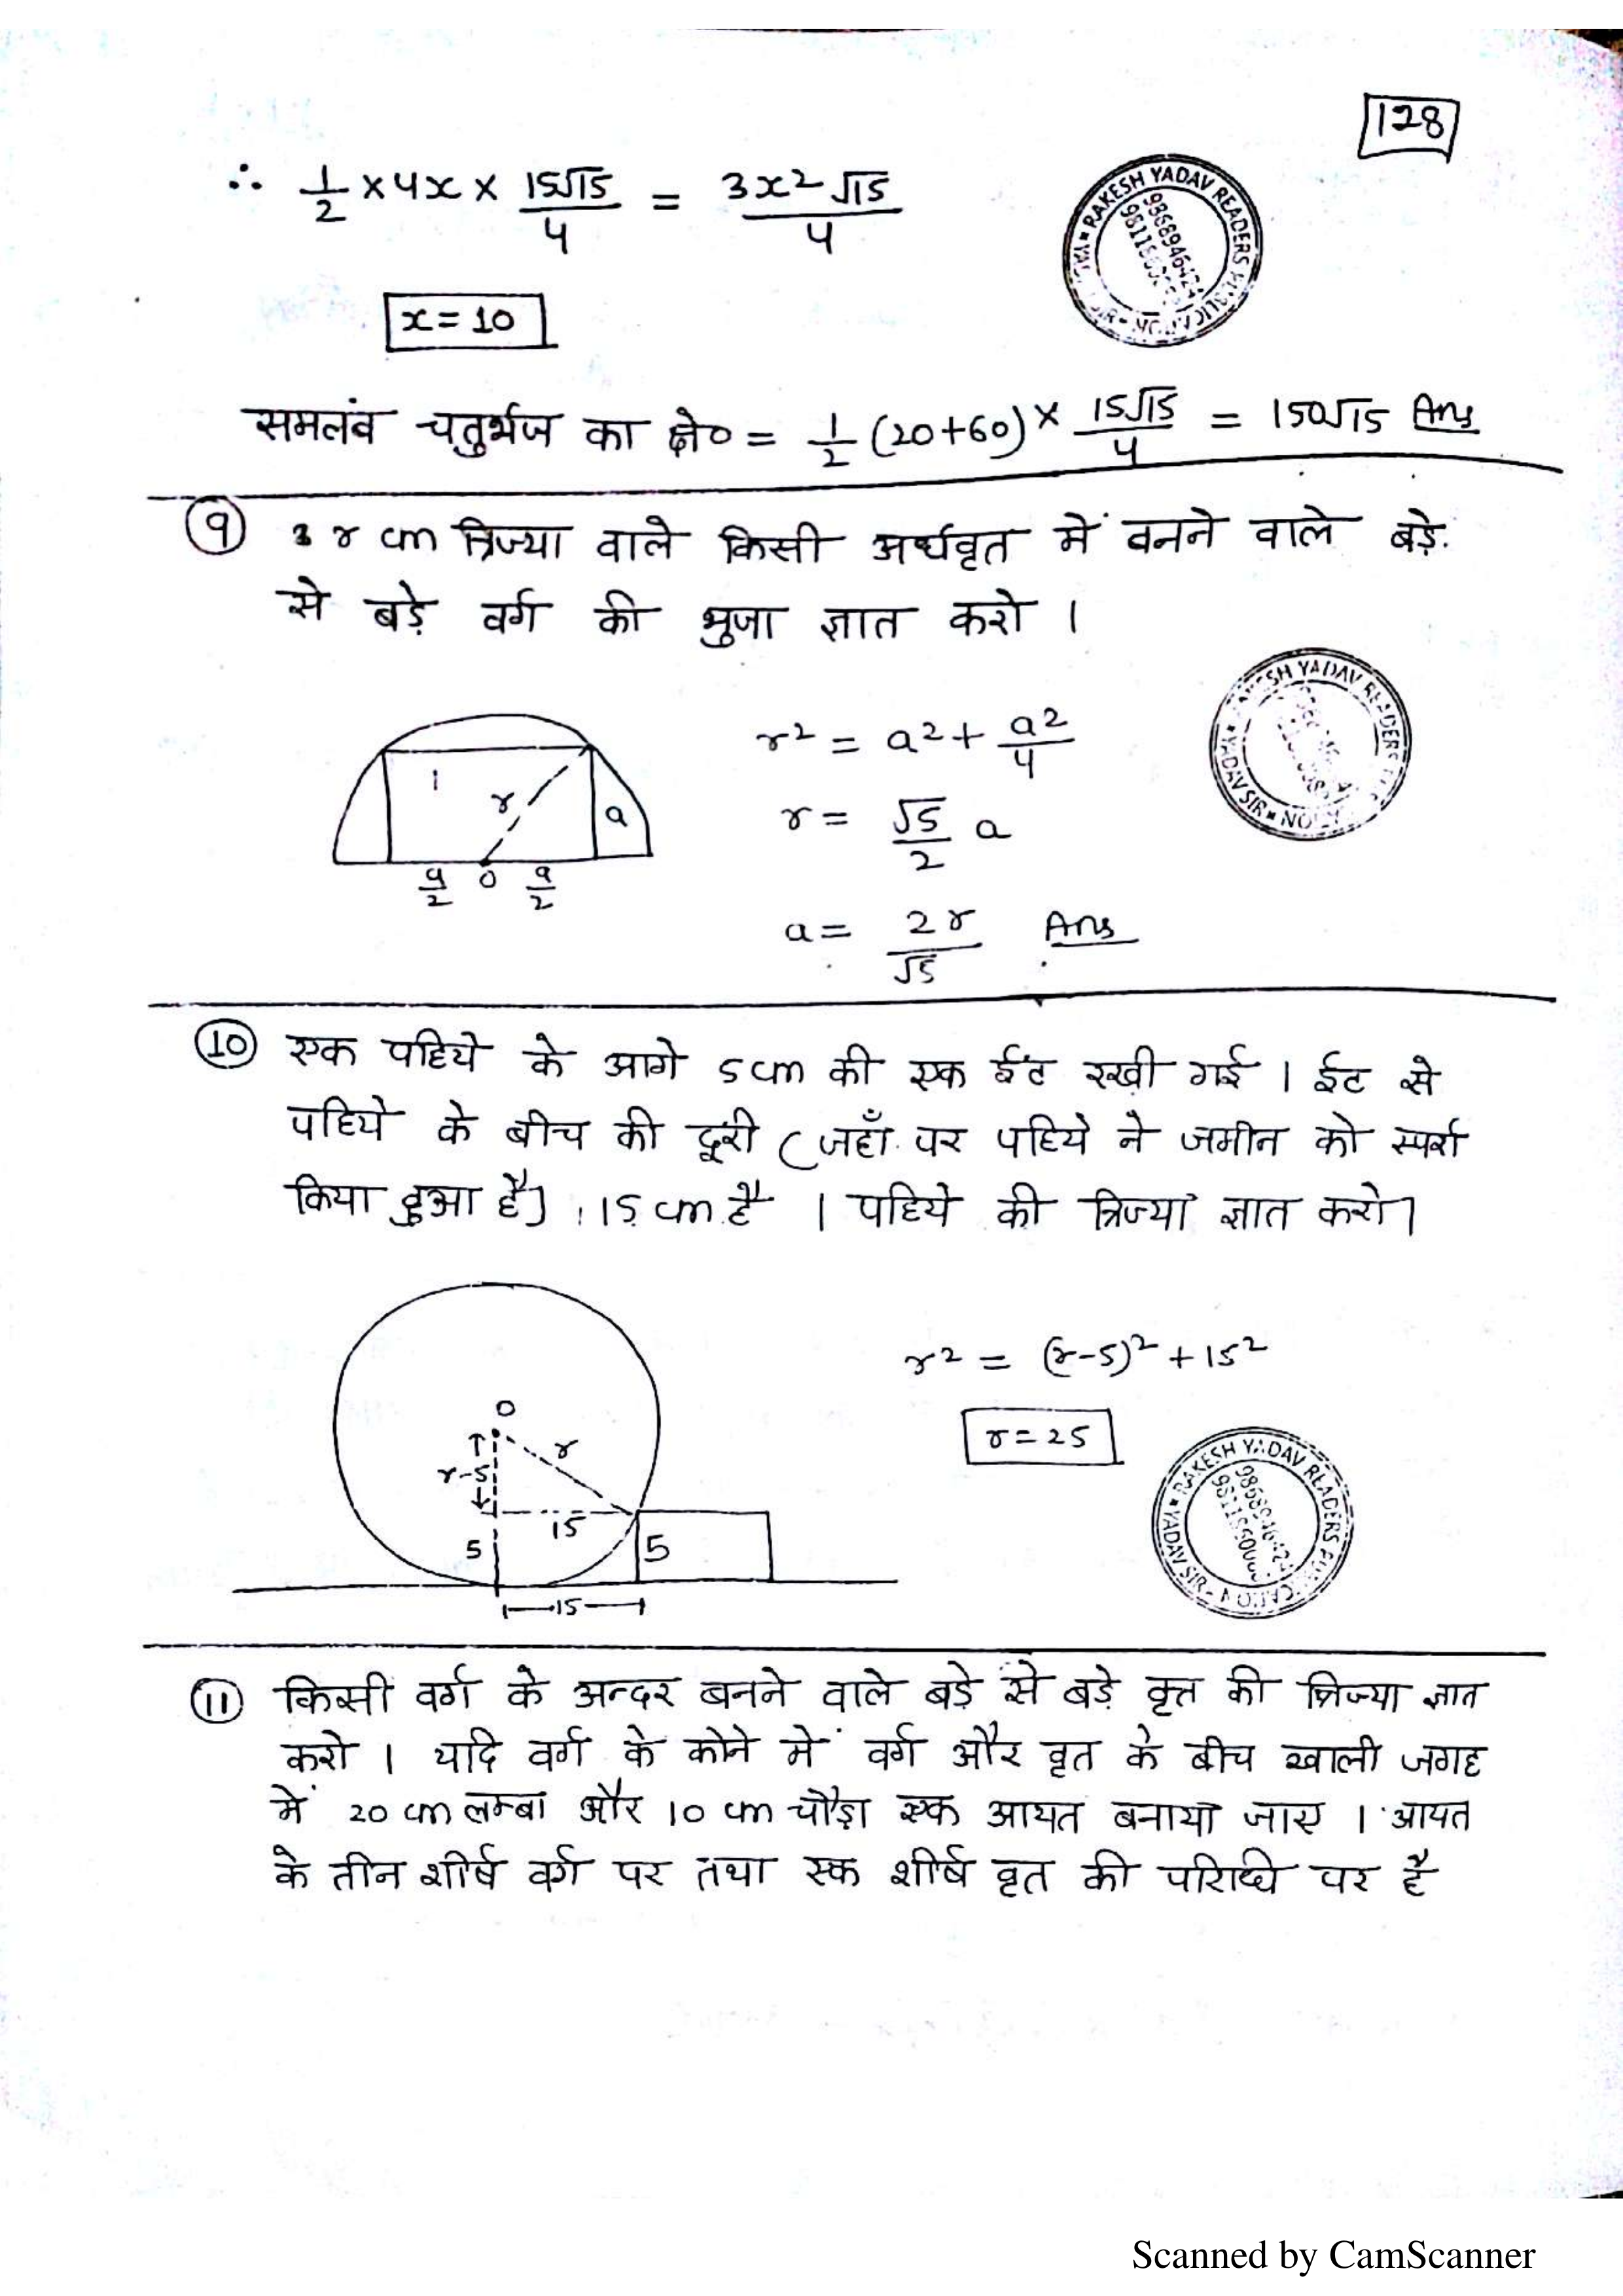 128
∴ 1/2 × 4x × 15√15/4 = 3x²√15/4
x = 10
समलंव चतुर्भज का क्षे० = 1/2 (20+60) × 15√15/4 = 150√15 Ans
RAKESH YADAV READERS PUBLICATION
⑨ r cm त्रिज्या वाले किसी अर्धवृत में वनने वाले बड़े
से बड़े वर्ग की भुजा ज्ञात करो ।
r a
a/2 O a/2
r² = a² + a²/4
r = √5/2 a
a = 2r/√5 Ans
YADAV READERS
⑩ एक पहिये के आगे 5 cm की एक ईंट रखी गई । ईट से
पहिये के बीच की दूरी (जहाँ पर पहिये ने जमीन को स्पर्श
किया हुआ है) 15 cm है । पहिये की त्रिज्या ज्ञात करो ।
O
r
r-5
15
5 5
15
r² = (r-5)² + 15²
r = 25
RAKESH YADAV READERS YADAV SIR
⑪ किसी वर्ग के अन्दर बनने वाले बड़े से बड़े वृत्त की त्रिज्या ज्ञात
करो । यदि वर्ग के कोने में वर्ग और वृत के बीच खाली जगह
में 20 cm लम्बा और 10 cm चौड़ा एक आयत बनाया जाए । आयत
के तीन शीर्ष वर्ग पर तथा एक शीर्ष वृत की परिधि पर है
Scanned by CamScanner